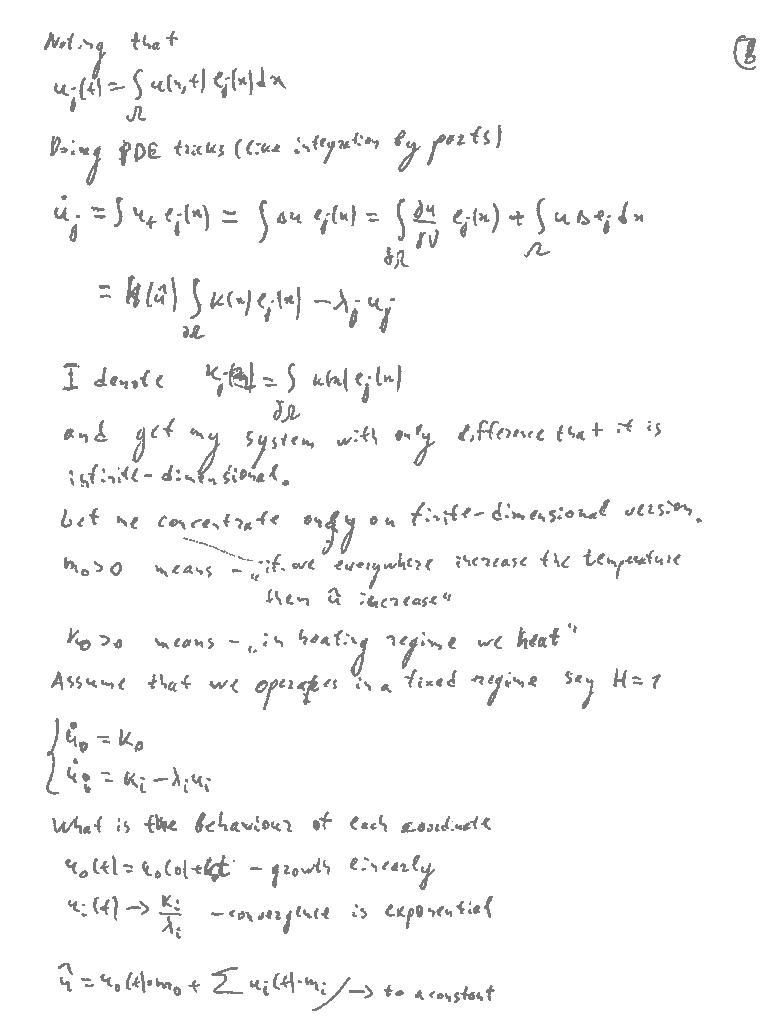 Noting that
8
u_j(t) = ∫_Ω u(x,t) e_j(x) dx
Doing PDE tricks (like integration by parts)
u̇_j = ∫ u_t e_j(x) = ∫ Δu e_j(x) = ∫_∂Ω ∂u/∂ν e_j(x) + ∫_Ω u Δe_j dx
= H(û) ∫_∂Ω K(x) e_j(x) − λ_j u_j
I denote K_j = ∫_∂Ω K(x) e_j(x)
and get my system with only difference that it is
infinite-dimensional.
Let me concentrate only on finite-dimensional version.
m_0>0 means – „if we everywhere increase the temperature
then û increase“
K_0>0 means – „in heating regime we heat“
Assume that we operates in a fixed regime say H=1
{ u̇_0 = K_0
u̇_i = K_i − λ_i u_i
What is the behaviour of each coordinate
u_0(t) = u_0(0) + K_0t – growth linearly
u_i(t) → K_i/λ_i – convergence is exponential
û = u_0(t)·m_0 + Σ u_i(t)·m_i → to a constant